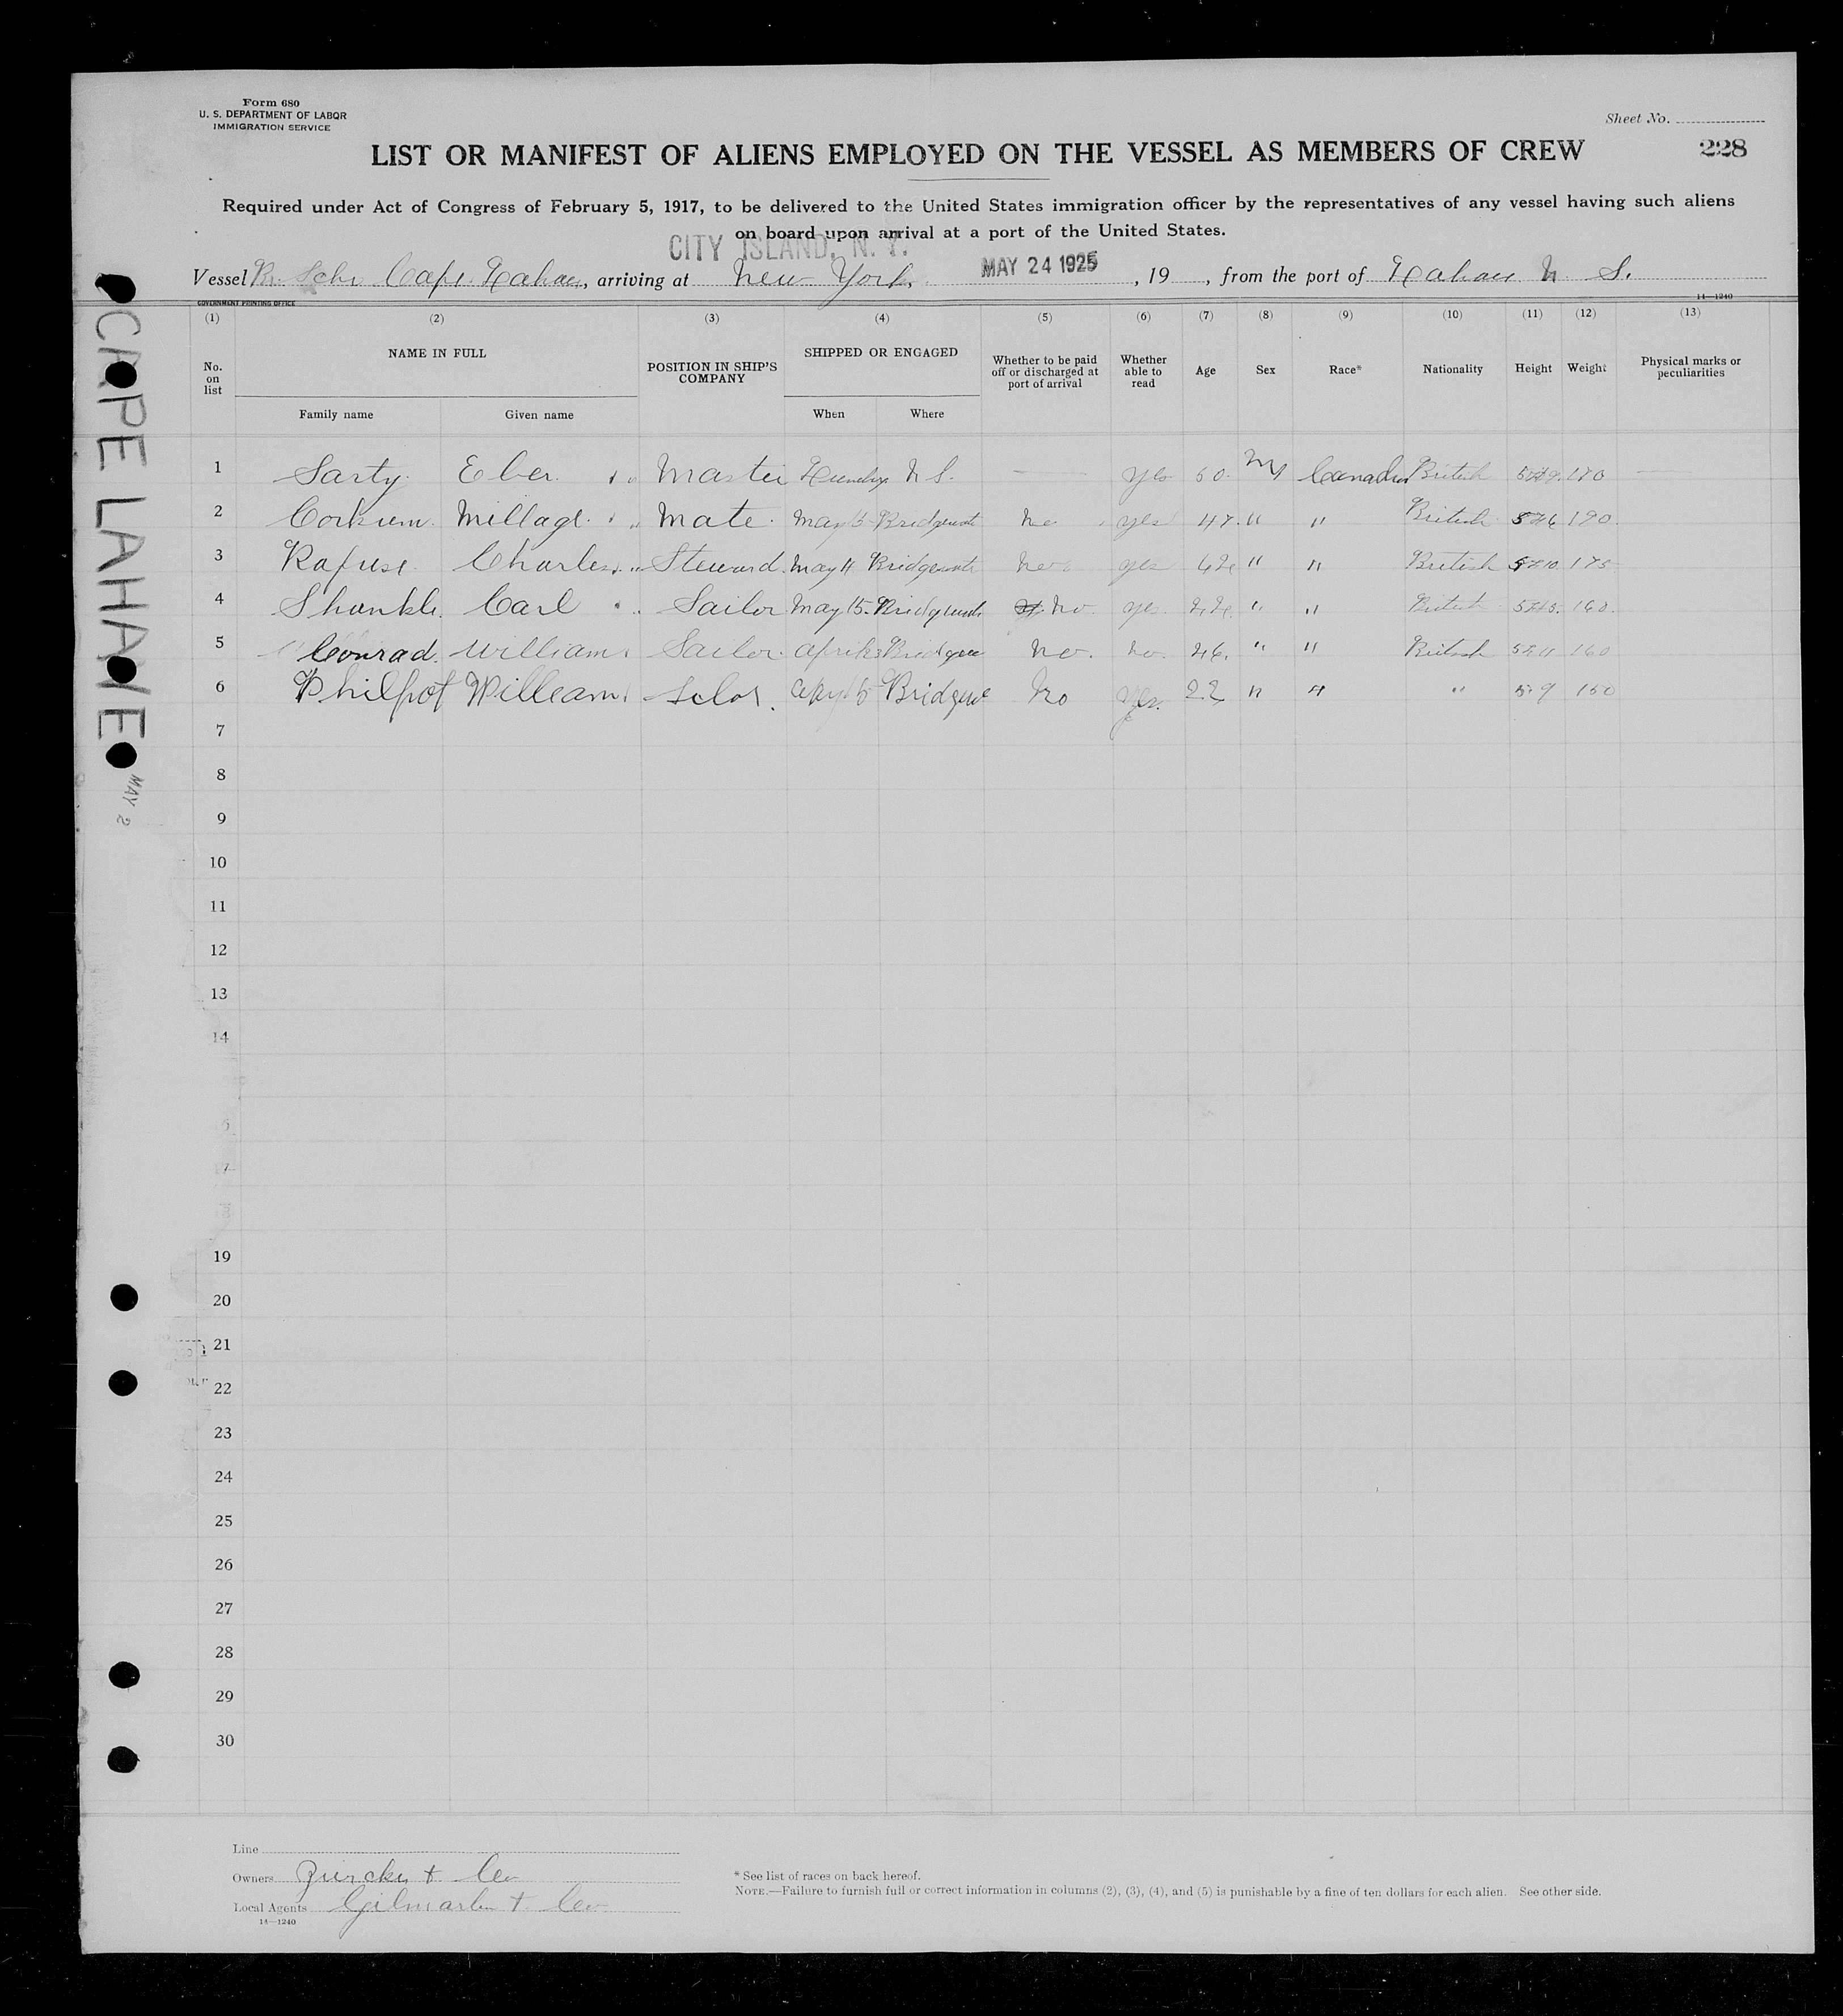 Form 680
U. S. DEPARTMENT OF LABOR
IMMIGRATION SERVICE
Sheet No.
LIST OR MANIFEST OF ALIENS EMPLOYED ON THE VESSEL AS MEMBERS OF CREW 228
Required under Act of Congress of February 5, 1917, to be delivered to the United States immigration officer by the representatives of any vessel having such aliens
on board upon arrival at a port of the United States.
CITY ISLAND, N. Y.
Vessel Br. Schr Cape Lahave, arriving at New York, MAY 24 1925, 19 , from the port of Lahave N. S.
GOVERNMENT PRINTING OFFICE 14—1240
(1) (2) (3) (4) (5) (6) (7) (8) (9) (10) (11) (12) (13)
No. on list NAME IN FULL POSITION IN SHIP'S COMPANY SHIPPED OR ENGAGED Whether to be paid off or discharged at port of arrival Whether able to read Age Sex Race* Nationality Height Weight Physical marks or peculiarities
Family name Given name When Where
1 Sarty. Eber. Master N S. — yes 50. Canadian British —
2 Corkum. Millage. Mate. May 15 No yes 47. " " British 5 6 190.
3 Rafuse. Charles. Steward. May 11 yes 42 " " British 5 10 175
4 Carl Sailor May 15. No. yes. 22. " " British 160.
5 Conrad. William. Sailor. April No. no. 26. " " British 5 11 160
6 Philpot William. No yes. 22 " " " 5 9 150
7
8
9
10
11
12
13
14
19
20
21
22
23
24
25
26
27
28
29
30
CAPE LAHAVE
MAY 2
Line
Owners
Local Agents
14—1240
* See list of races on back hereof.
NOTE.—Failure to furnish full or correct information in columns (2), (3), (4), and (5) is punishable by a fine of ten dollars for each alien. See other side.